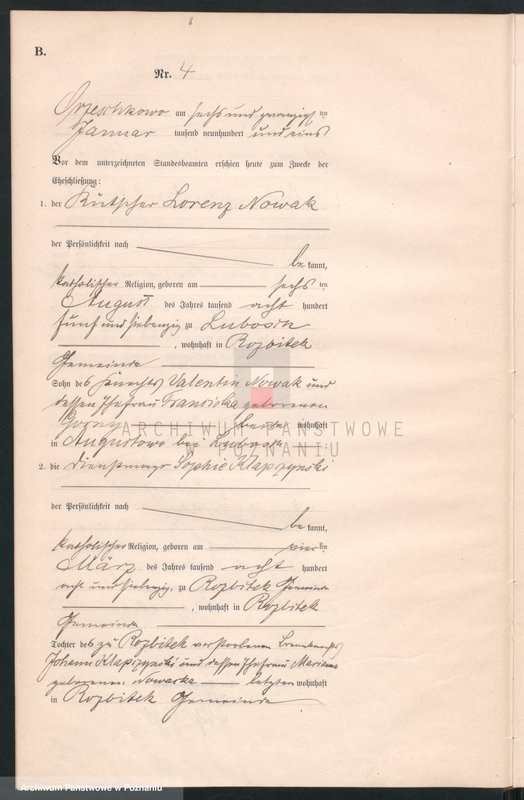 8
B.
Nr. 4
Orzeschkowo am sechs und zwanzigsten
Januar tausend neunhundert und eins
Vor dem unterzeichneten Standesbeamten erschien heute zum Zwecke der
Eheschließung:
1. der Kutscher Lorenz Nowak
der Persönlichkeit nach
be kannt,
katholischer Religion, geboren am sechsten
August des Jahres tausend acht hundert
fünf und siebenzig zu Lubosch
, wohnhaft in Rozbitek
Gemeinde
Sohn des Valentin Nowak und
dessen Ehefrau Franziska geborenen
beide wohnhaft
in Augustowo bei Lubosch ;
2. die Dienstmagd Sophie Klapczynski
der Persönlichkeit nach
be kannt,
katholischer Religion, geboren am vierten
März des Jahres tausend acht hundert
acht und siebenzig, zu Rozbitek Gemeinde
, wohnhaft in Rozbitek
Gemeinde
Tochter des zu Rozbitek verstorbenen
Johann Klapczynski und dessen Ehefrau Marianna
geborenen Nowacka letztere wohnhaft
in Rozbitek Gemeinde
ARCHIWUM PAŃSTWOWE
W POZNANIU
Archiwum Państwowe w Poznaniu